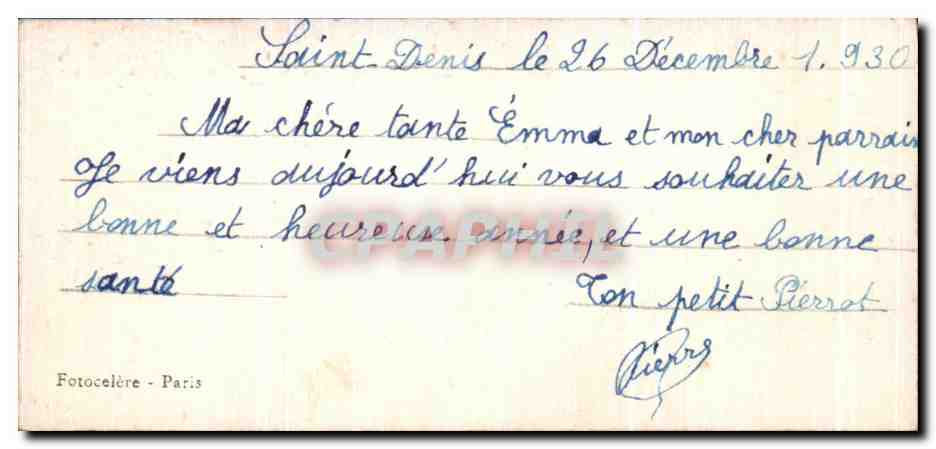 Saint Denis le 26 Décembre 1.930
Ma chére tante Émma et mon cher parrain
Je viens aujourd'hui vous souhaiter une
bonne et heureuse année, et une bonne
santé
Ton petit Pierrot
Pierre
Fotocelère - Paris
CPAPHIL